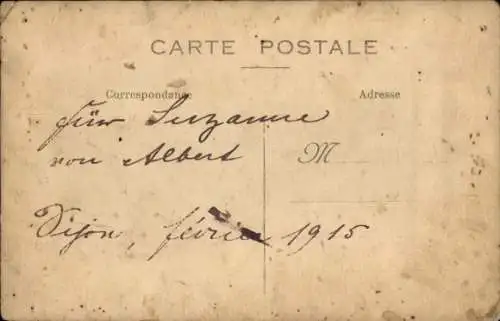 CARTE POSTALE
Correspondance
Adresse
für Suzanne
von Albert
M
Dijon, février 1915